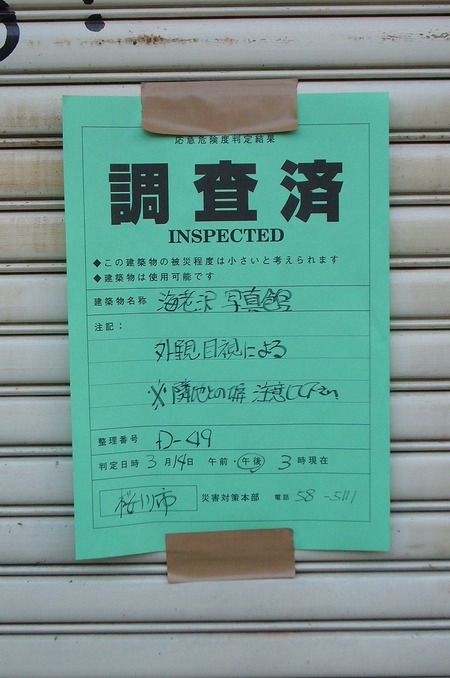 応急危険度判定結果
調査済
INSPECTED
◆この建築物の被災程度は小さいと考えられます
◆建築物は使用可能です
建築物名称 海老沢写真館
注記：
外観目視による
※隣地との塀 注意して下さい
整理番号 D-49
判定日時 3月14日 午前・午後 3時現在
桜川市 災害対策本部 電話 58-5111